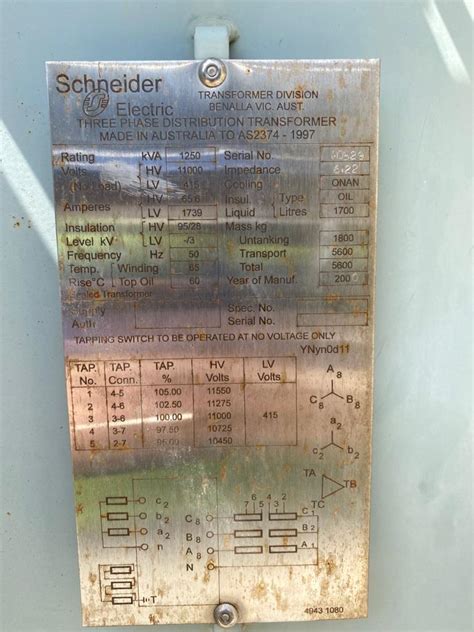 Schneider
Electric
TRANSFORMER DIVISION
BENALLA VIC. AUST.
THREE PHASE DISTRIBUTION TRANSFORMER
MADE IN AUSTRALIA TO AS2374 - 1997
Rating kVA 1250 Serial No.
Volts HV 11000 Impedance 6.22
(No Load) LV 415 Cooling ONAN
Amperes HV 65.6 Insul. Type OIL
LV 1739 Liquid Litres 1700
Insulation HV 95/28 Mass kg
Level kV LV -/3 Untanking 1800
Frequency Hz 50 Transport 5600
Temp. Winding 65 Total 5600
Rise°C Top Oil 60 Year of Manuf.
Sealed Transformer
Supply Spec. No.
Auth. Serial No.
TAPPING SWITCH TO BE OPERATED AT NO VOLTAGE ONLY
YNyn0d11
TAP. TAP. TAP. HV LV
No. Conn. % Volts Volts
1 4-5 105.00 11550
2 4-6 102.50 11275
3 3-6 100.00 11000 415
4 3-7 97.50 10725
5 2-7 95.00 10450
A8
C8 B8
a2
c2 b2
TA TB
TC
7 5 3
6 4 2
c2 C8 C1
b2 B8 B1
a2 A8 A1
n N
T
4943 1080